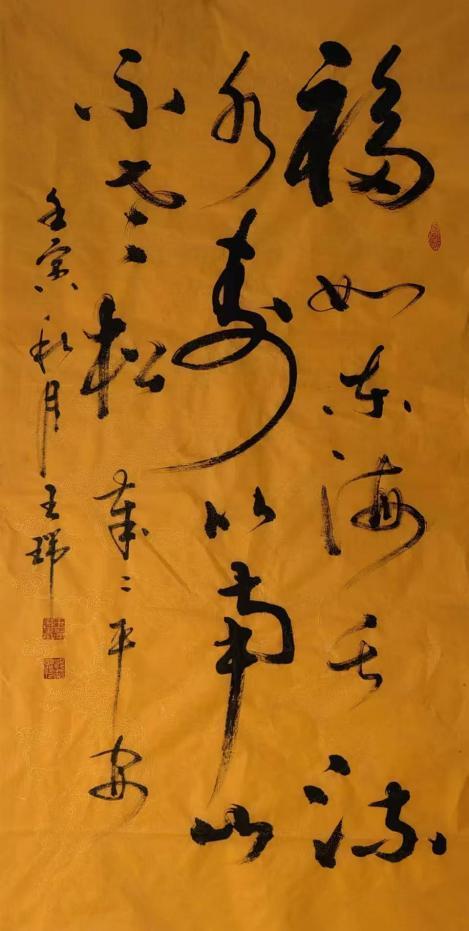 福如东海长流
水寿比南山
不老松岁〻平安
壬寅秋月王瑞